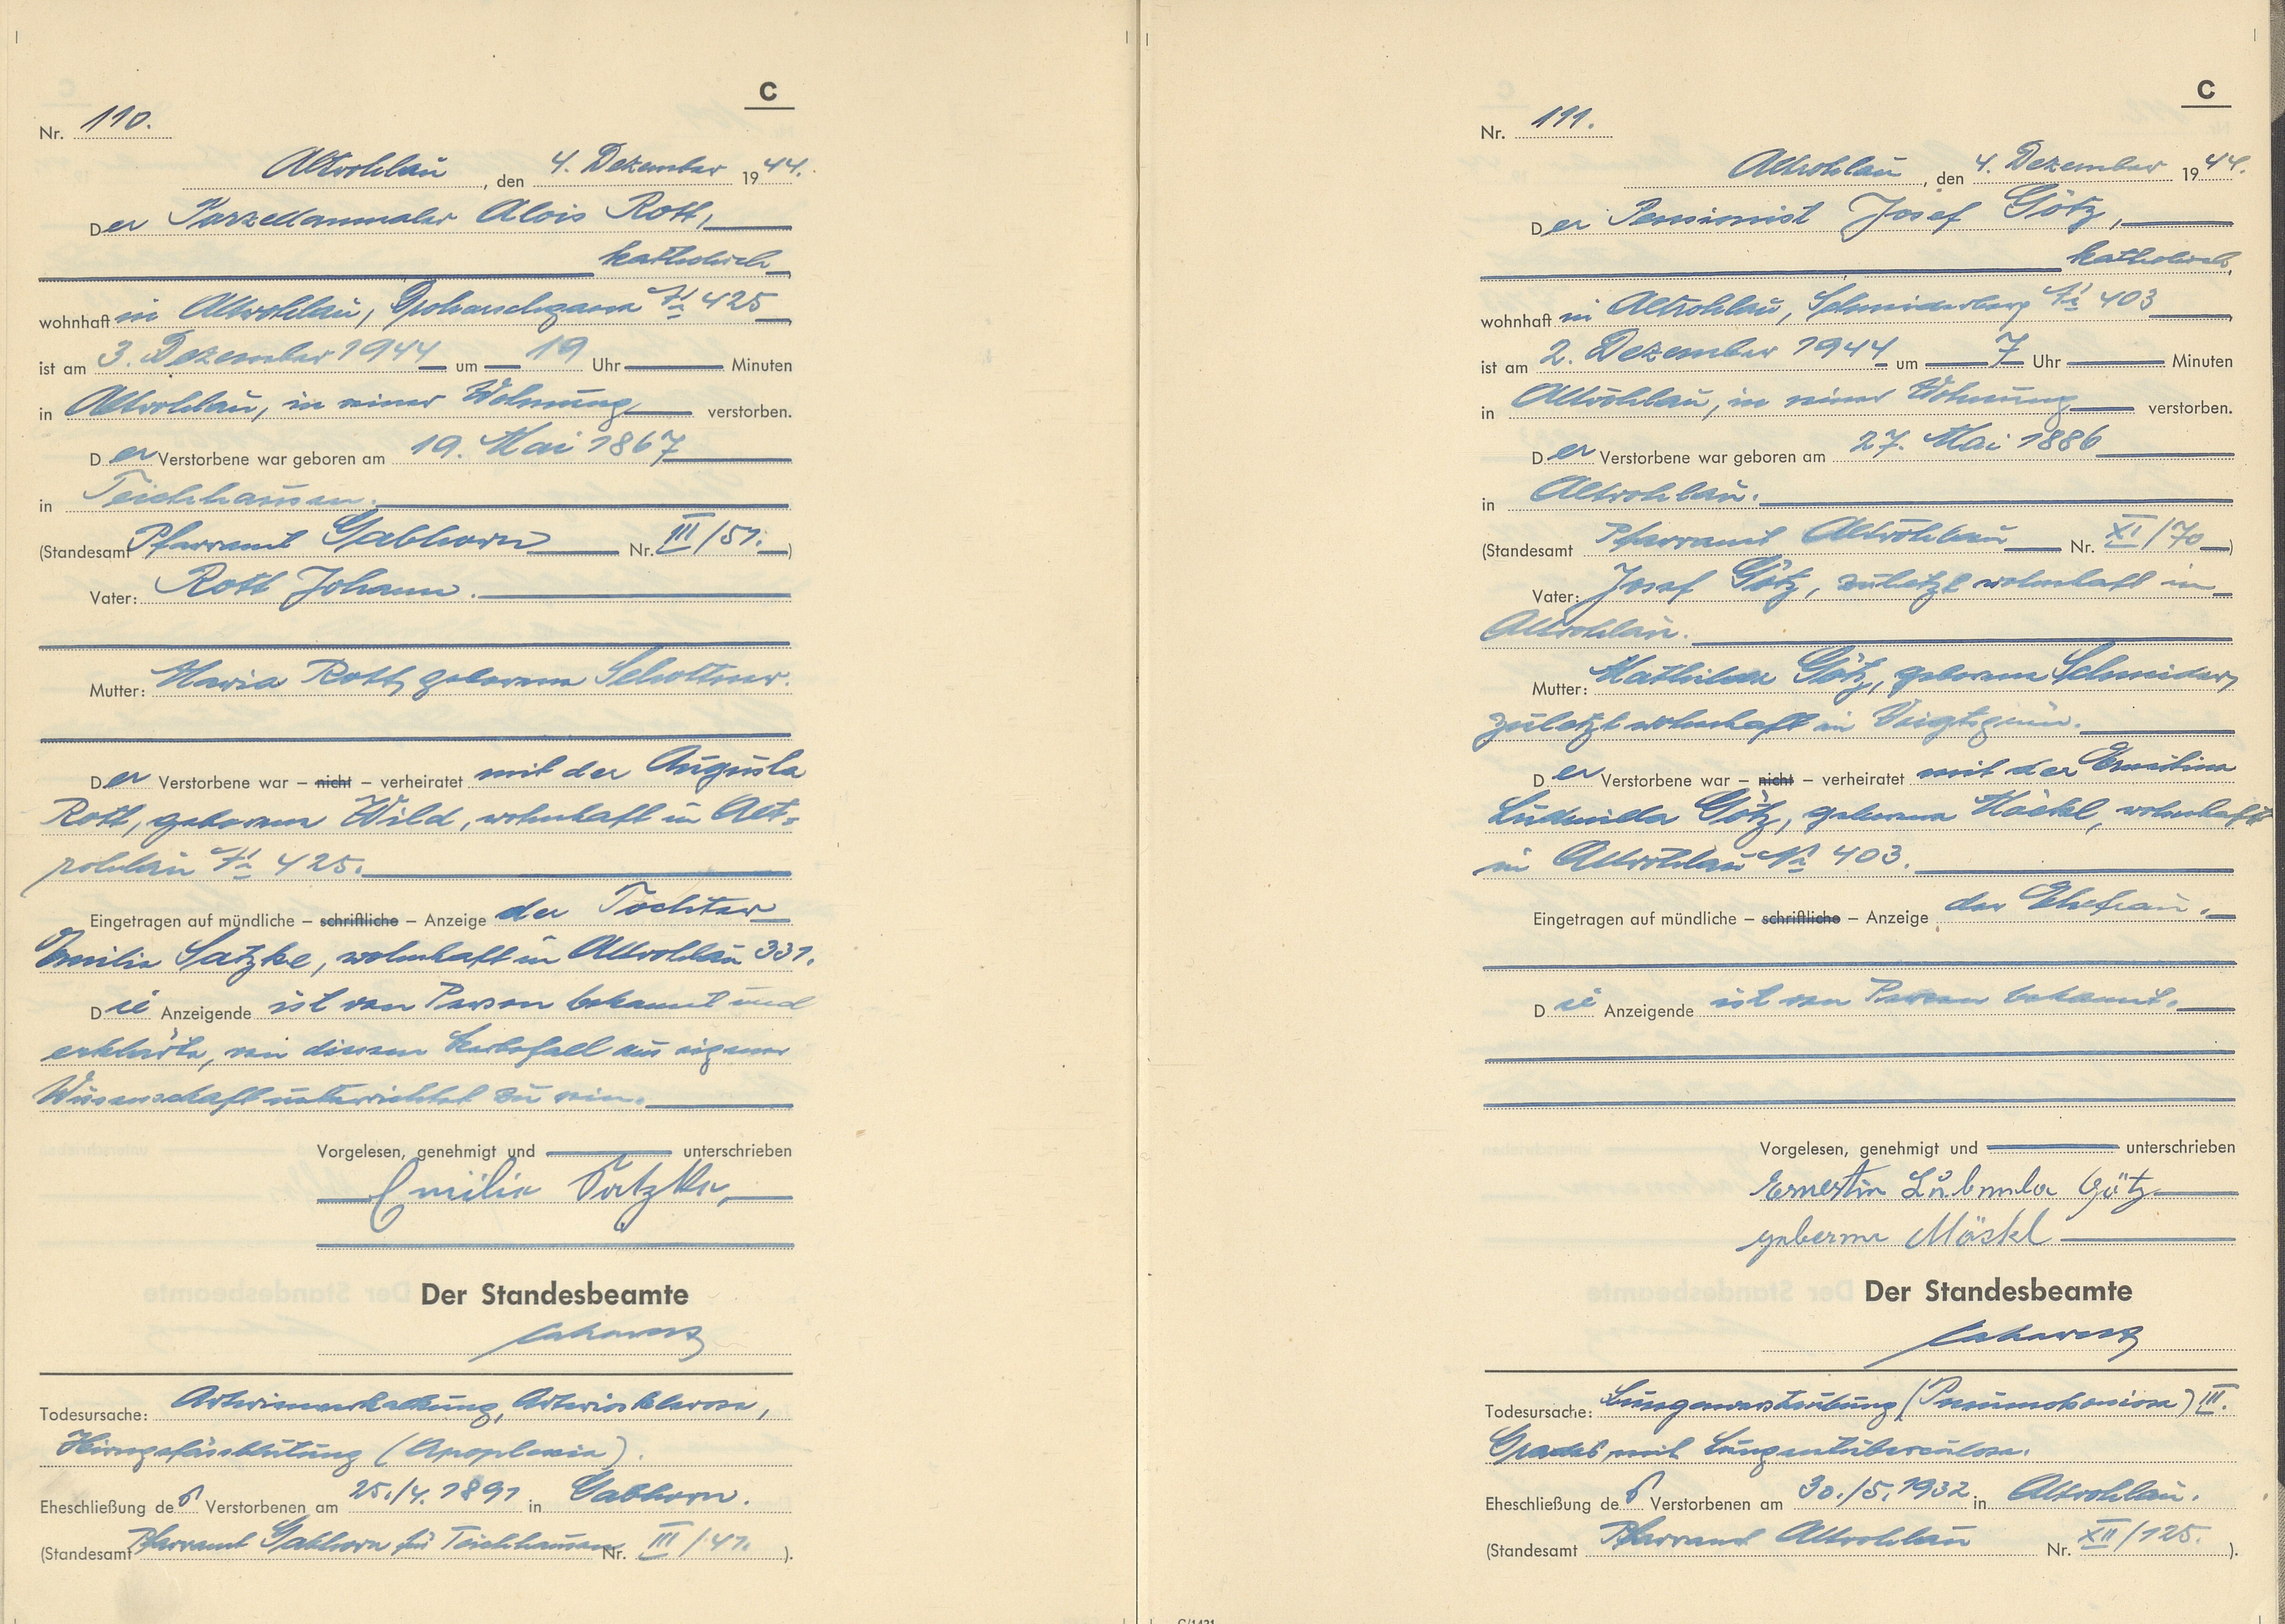 C
Nr. 110.
Altrohlau, den 4. Dezember 1944.
Der Porzellanmaler Alois Rott,
katholisch
wohnhaft in Altrohlau, Nr 425
ist am 3. Dezember 1944 um 19 Uhr Minuten
in Altrohlau, in seiner Wohnung verstorben.
Der Verstorbene war geboren am 19. Mai 1867
in Teichhausen.
(Standesamt Pfarramt Gabhorn Nr. III/51.)
Vater: Rott Johann.
Mutter: Maria Rott, geborene Schottner.
Der Verstorbene war – nicht – verheiratet mit der Augusta
Rott, geborene Wild, wohnhaft in Alt-
rohlau Nr 425.
Eingetragen auf mündliche – schriftliche – Anzeige der Tochter
Emilie Satzke, wohnhaft in Altrohlau 331.
Die Anzeigende ist von Person bekannt und
erklärte, von diesem Sterbefall aus eigener
Wissenschaft unterrichtet zu sein.
Vorgelesen, genehmigt und unterschrieben
Emilie
Der Standesbeamte
Todesursache: Arterienverkalkung, Arteriosklerose,
Hirngefässblutung (Apoplexie).
Eheschließung des Verstorbenen am 25./4. 1891 in Gabhorn.
(Standesamt Pfarramt Gabhorn für Teichhausen Nr. III/41.).
C
Nr. 111.
Altrohlau, den 4. Dezember 1944.
Der Pensionist Josef Götz,
katholisch,
wohnhaft in Altrohlau, Schmiedberg Nr 403
ist am 2. Dezember 1944 um 7 Uhr Minuten
in Altrohlau, in seiner Wohnung verstorben.
Der Verstorbene war geboren am 27. Mai 1886
in Altrohlau.
(Standesamt Pfarramt Altrohlau Nr. XI/70)
Vater: Josef Götz, zuletzt wohnhaft in
Altrohlau.
Mutter: Mathilde Götz, geborene Schneider,
zuletzt wohnhaft in Voigtsgrün.
Der Verstorbene war – nicht – verheiratet mit der
Ludmilla Götz, geborene Möckl, wohnhaft
in Altrohlau Nr 403.
Eingetragen auf mündliche – schriftliche – Anzeige der Ehefrau.
Die Anzeigende ist von Person bekannt.
Vorgelesen, genehmigt und unterschrieben
Ernestin Ludmila Götz
geborene Möckl
Der Standesbeamte
Todesursache: Lungenverstaubung (Pneumokoniose) III.
Grades, mit Lungentuberculose.
Eheschließung des Verstorbenen am 30./5. 1932 in Altrohlau.
(Standesamt Pfarramt Altrohlau Nr. XII/125.).
C/1421